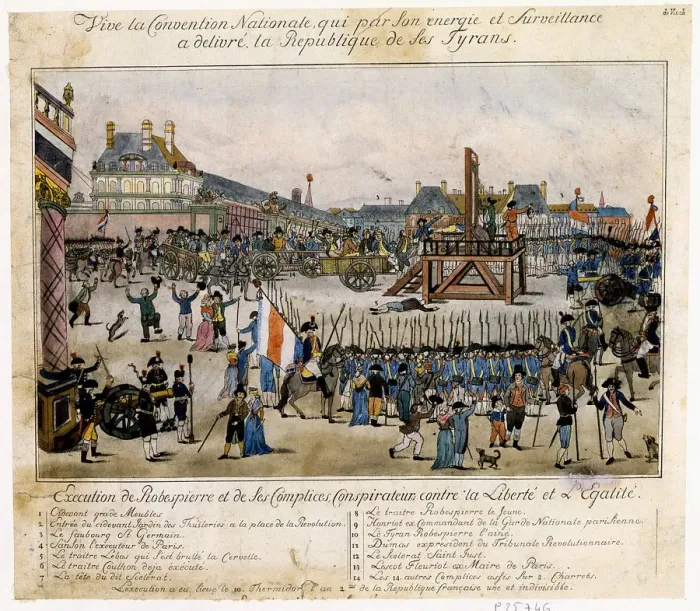 Vive la Convention Nationale, qui par son energie et Surveillance
a delivré la Republique de ses Tyrans.
Execution de Robespierre et de ses Complices, Conspirateur contre la Liberté et L'Egalité.
1 Cidevent grade Meubles
2 Entrée du cidevant Jardin des Thuileries a la place de la Revolution.
3 Le Faubourg St Germain.
4 Sanson l'executeur de Paris.
5 Le traitre Lebas qui s'est brulté la Cervelle.
6 Le traitre Couthon deja éxécuté.
7 La tête du dit Scelerat.
8 Le traitre Robespierre le Jeune.
9 Henriot ex Commandant de la Garde Nationale parisienne.
10 Le Tyran Robespierre l'ainé.
11 Dumas expresident du Tribunale Revolutionnaire.
12 Le Scelerat Saint Just.
13 Lescot Fleuriot ex Maire de Paris.
14 Les 14 autres Complices assis sur 2 Charrets.
L'execution a eu lieu le 10 Thermidor l'an 2 de la Republique française une et indivisible.
P25746